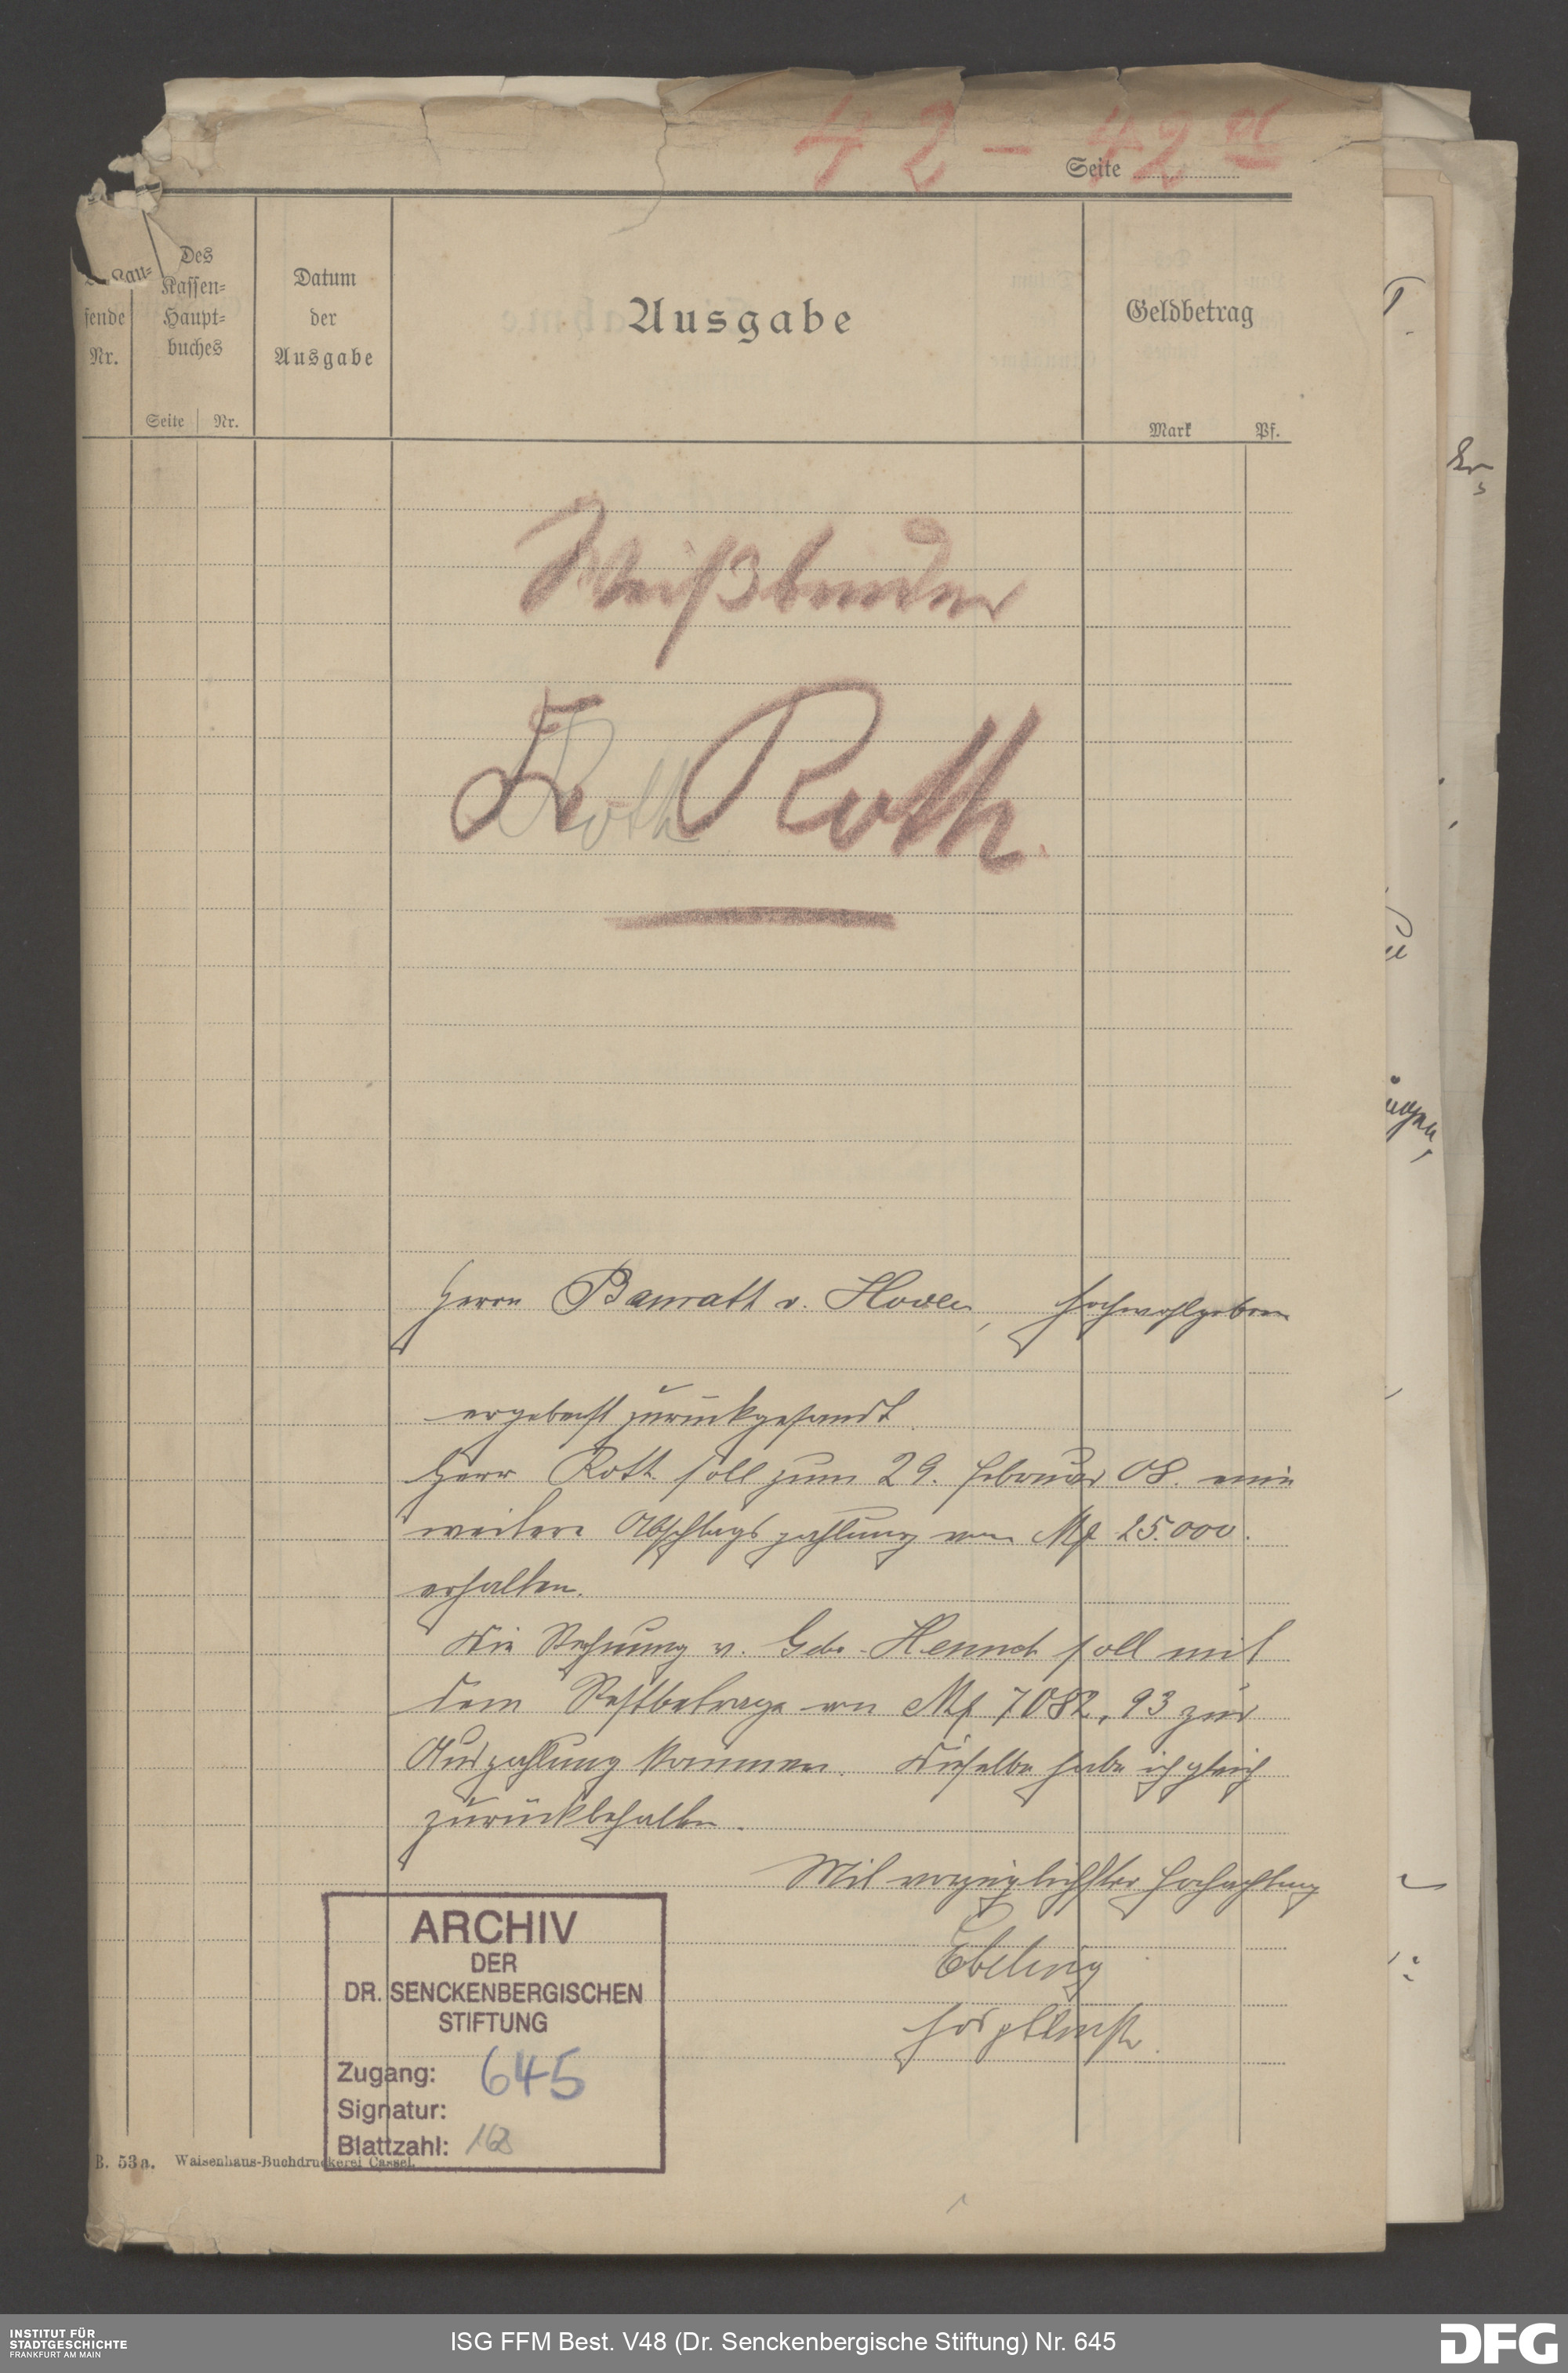 42 - 42a
Seite
Lau=
fende
Nr.
Des
Kassen=
Haupt=
buches
Seite Nr.
Datum
der
Ausgabe
Ausgabe
Geldbetrag
Mark Pf.
Weißbinder
Roth
Roth.
Herrn Baurath v. Hoven, Hochwohlgeboren
ergebenst zurückgesandt.
Herr Roth soll zum 29. Februar 08. eine
weitere Abschlagszahlung von Mk 25.000.
erhalten.
Die Rechnung v. Gebr. soll mit
dem Restbetrage von Mk 7082,93 zur
Auszahlung kommen. Dieselbe habe ich gleich
zurückbehalten.
Mit vorzüglichster Hochachtung
Ebeling
ARCHIV
DER
DR. SENCKENBERGISCHEN
STIFTUNG
Zugang: 645
Signatur:
Blattzahl: 168
B. 53a. Waisenhaus-Buchdruckerei Cassel.
INSTITUT FÜR
STADTGESCHICHTE
FRANKFURT AM MAIN
ISG FFM Best. V48 (Dr. Senckenbergische Stiftung) Nr. 645
DFG